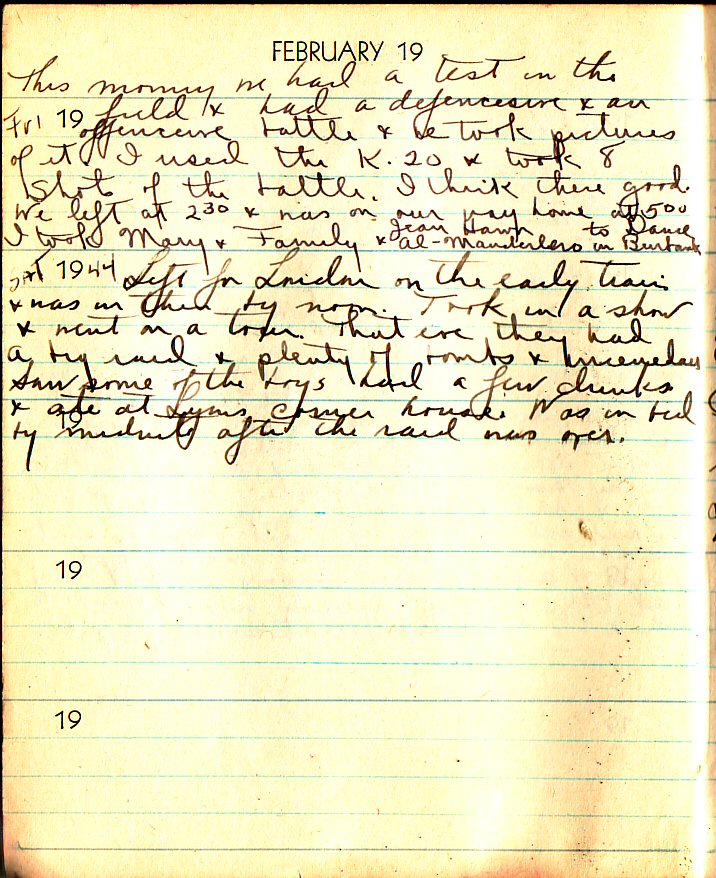 FEBRUARY 19
This morning we had a test in the
Fri 19 field & had a defencesive & an
offenceive battle & we took pictures
of it. I used the K.20 & took 8
Shots of the battle. I think there good.
We left at 2 30 & was on our way home at 5 00
Jean Hawn to Dance
I took Mary & Family & Al- in Burbank
Sat 1944 Left for London on the early train
& was in there by noon. Took in a show
& went on a tour. That eve they had
a big raid & plenty of bombs &
Saw some of the boys had a few drinks
& ate at Lyons corner house. Was in bed
19
by midnite after the raid was over.
19
19